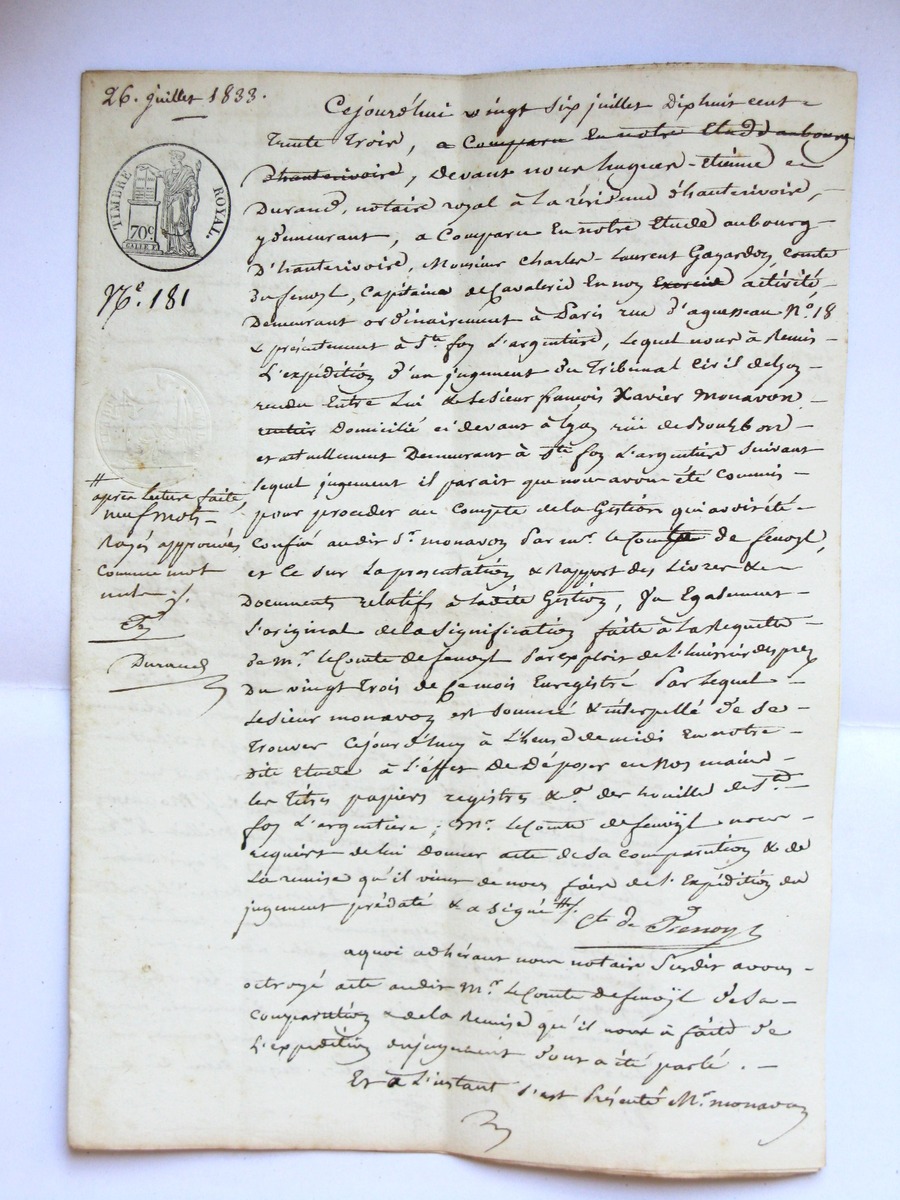 26. juillet 1833.
TIMBRE ROYAL.
70c
N.° 181
Cejourd'hui vingt six juillet dix huit cent
trente trois, a comparu en notre Etude au bourg
d'hauterivoire, devant nous hugues-Etienne
Durand, notaire royal à la résidence d'hauterivoire,
y demeurant, a comparu en notre Etude au bourg
D'hauterivoire, Monsieur Charles-Laurent Gayardon comte
De fenoyl, Capitaine de Cavalerie en non Exercice activité
Demeurant ordinairement à Paris rue d'aguesseau N.° 18
& présentement à Ste foy L'argentière, lequel nous à Remis
L'expédition d'un jugement du Tribunal Civil de Lyon
rendu Entre Lui & le sieur francois Xavier Monavon
rentier Domicilié ci devant à Lyon rüe de Bourbon
et actuellement Demeurant à Ste foy L'argentiere suivant
lequel jugement il parait que nous avons été commis
pour proceder au Compte de la Gestion qui avoit été
Confiée au dit Sr monavon Par mr. le Comte de fenoyl,
et ce sur La présentation & Rapport des Livres &
Documents relatifs à ladite Gestion, Egalement
L'original de la signification faite à La Requette
De Mr. le Comte de fenoyl Par exploit de L'huissier
Du vingt trois de ce mois Enregistré Par lequel
Le sieur monavon est sommé & interpellé de se
trouver cejourd'huy à L'heure de midi En notre
dite Etude à L'éffet De Déposer en Nos mains
les titres papiers registres &a. des houille de Ste
foy L'argentiere; Mr. Le Comte de fenoyl nous
requiert de lui Donner acte de sa comparution & de
La remise qu'il vient de nous faire de L'Expédition du
jugement prédaté & a signé #.
Cte de Fenoyl
a quoi adhérant nous notaire susdit avons
octroyé acte au dit Mr. Le Comte De fenoyl de sa
comparution & de la Remise qu'il nous à faite de
L'expedition du jugement dont a été parlé.
Et à L'instant s'est Présenté Mr. monavon
# après lecture faite,
neuf mots
Rayés approuvés
comme mot
nuls ./.
Durand